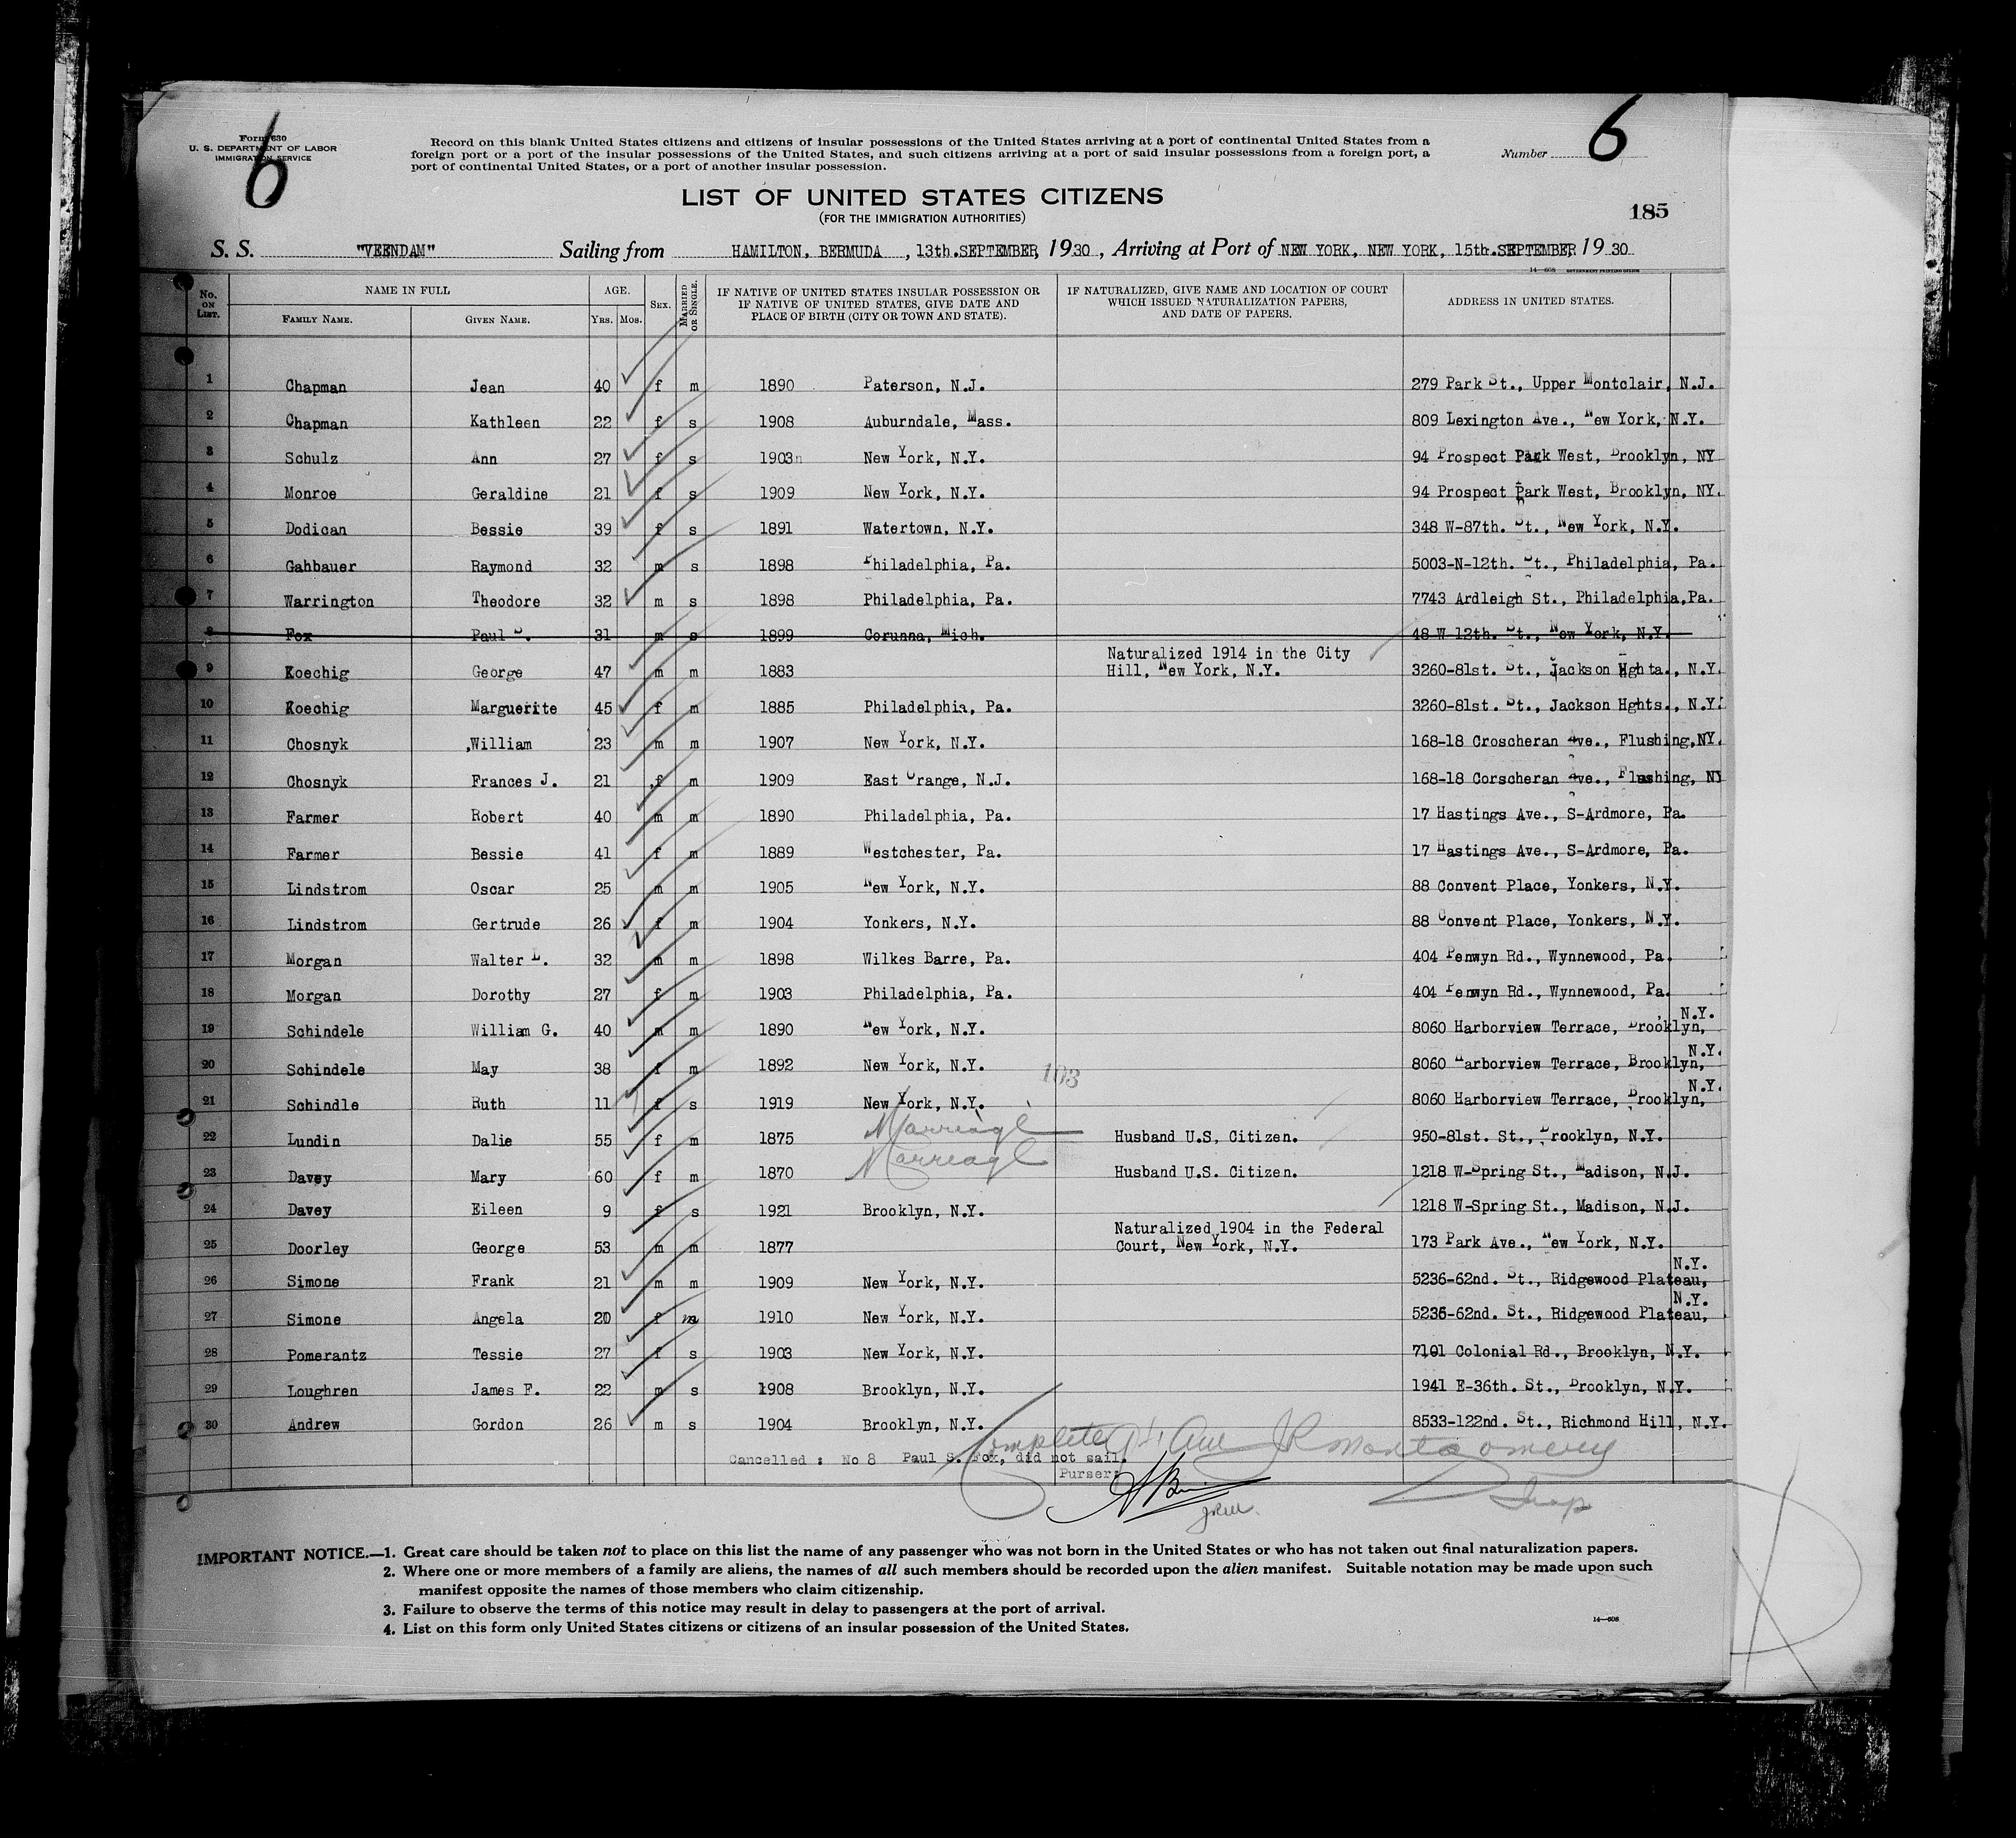 Form 630
U. S. DEPARTMENT OF LABOR
IMMIGRATION SERVICE
6
Record on this blank United States citizens and citizens of insular possessions of the United States arriving at a port of continental United States from a
foreign port or a port of the insular possessions of the United States, and such citizens arriving at a port of said insular possessions from a foreign port, a
port of continental United States, or a port of another insular possession.
Number 6
LIST OF UNITED STATES CITIZENS
(FOR THE IMMIGRATION AUTHORITIES)
185
S. S. "VEENDAM" Sailing from HAMILTON, BERMUDA, 13th.SEPTEMBER, 1930, Arriving at Port of NEW YORK, NEW YORK, 15th.SEPTEMBER, 1930
14—608 GOVERNMENT PRINTING OFFICE
No. ON LIST. NAME IN FULL AGE. SEX. MARRIED OR SINGLE. IF NATIVE OF UNITED STATES INSULAR POSSESSION OR IF NATIVE OF UNITED STATES, GIVE DATE AND PLACE OF BIRTH (CITY OR TOWN AND STATE). IF NATURALIZED, GIVE NAME AND LOCATION OF COURT WHICH ISSUED NATURALIZATION PAPERS, AND DATE OF PAPERS. ADDRESS IN UNITED STATES.
FAMILY NAME. GIVEN NAME. YRS. MOS.
1 Chapman Jean 40 f m 1890 Paterson, N.J. 279 Park St., Upper Montclair, N.J.
2 Chapman Kathleen 22 f s 1908 Auburndale, Mass. 809 Lexington Ave., New York, N.Y.
3 Schulz Ann 27 f s 1903 New York, N.Y. 94 Prospect Park West, Brooklyn, NY
4 Monroe Geraldine 21 f s 1909 New York, N.Y. 94 Prospect Park West, Brooklyn, NY.
5 Dodican Bessie 39 f s 1891 Watertown, N.Y. 348 W-87th. St., New York, N.Y.
6 Gahbauer Raymond 32 m s 1898 Philadelphia, Pa. 5003-N-12th. St., Philadelphia, Pa.
7 Warrington Theodore 32 m s 1898 Philadelphia, Pa. 7743 Ardleigh St., Philadelphia,Pa.
8 Fox Paul S. 31 m s 1899 Corunna, Mich. 48 W-12th. St., New York, N.Y.
9 Koechig George 47 m m 1883 Naturalized 1914 in the City Hill, New York, N.Y. 3260-81st. St., Jackson Hghts., N.Y.
10 Koechig Marguerite 45 f m 1885 Philadelphia, Pa. 3260-81st. St., Jackson Hghts., N.Y.
11 Chosnyk William 23 m m 1907 New York, N.Y. 168-18 Croscheran Ave., Flushing,NY.
12 Chosnyk Frances J. 21 f m 1909 East Orange, N.J. 168-18 Corscheran Ave., Flushing, NY
13 Farmer Robert 40 m m 1890 Philadelphia, Pa. 17 Hastings Ave., S-Ardmore, Pa.
14 Farmer Bessie 41 f m 1889 Westchester, Pa. 17 Hastings Ave., S-Ardmore, Pa.
15 Lindstrom Oscar 25 m m 1905 New York, N.Y. 88 Convent Place, Yonkers, N.Y.
16 Lindstrom Gertrude 26 f m 1904 Yonkers, N.Y. 88 Convent Place, Yonkers, N.Y.
17 Morgan Walter L. 32 m m 1898 Wilkes Barre, Pa. 404 Penwyn Rd., Wynnewood, Pa.
18 Morgan Dorothy 27 f m 1903 Philadelphia, Pa. 404 Penwyn Rd., Wynnewood, Pa.
19 Schindele William G. 40 m m 1890 New York, N.Y. 8060 Harborview Terrace, Brooklyn, N.Y.
20 Schindele May 38 f m 1892 New York, N.Y. 8060 Harborview Terrace, Brooklyn, N.Y.
103
21 Schindle Ruth 11 f s 1919 New York, N.Y. 8060 Harborview Terrace, Brooklyn, N.Y.
22 Lundin Dalie 55 f m 1875 Marriage Husband U.S, Citizen. 950-81st. St., Brooklyn, N.Y.
23 Davey Mary 60 f m 1870 Marriage Husband U.S. Citizen. 1218 W-Spring St., Madison, N.J.
24 Davey Eileen 9 f s 1921 Brooklyn, N.Y. 1218 W-Spring St., Madison, N.J.
25 Doorley George 53 m m 1877 Naturalized 1904 in the Federal Court, New York, N.Y. 173 Park Ave., New York, N.Y.
26 Simone Frank 21 m m 1909 New York, N.Y. 5236-62nd. St., Ridgewood Plateau, N.Y.
27 Simone Angela 20 f m 1910 New York, N.Y. 5236-62nd. St., Ridgewood Plateau, N.Y.
28 Pomerantz Tessie 27 f s 1903 New York, N.Y. 7101 Colonial Rd., Brooklyn, N.Y.
29 Loughren James F. 22 m s 1908 Brooklyn, N.Y. 1941 E-36th. St., Brooklyn, N.Y.
30 Andrew Gordon 26 m s 1904 Brooklyn, N.Y. 8533-122nd. St., Richmond Hill, N.Y.
Completed JR Montgomery
Cancelled : No 8 Paul S. Fox, did not sail.
Purser:
Insp
IMPORTANT NOTICE.—1. Great care should be taken not to place on this list the name of any passenger who was not born in the United States or who has not taken out final naturalization papers.
2. Where one or more members of a family are aliens, the names of all such members should be recorded upon the alien manifest. Suitable notation may be made upon such
manifest opposite the names of those members who claim citizenship.
3. Failure to observe the terms of this notice may result in delay to passengers at the port of arrival.
4. List on this form only United States citizens or citizens of an insular possession of the United States.
14—608